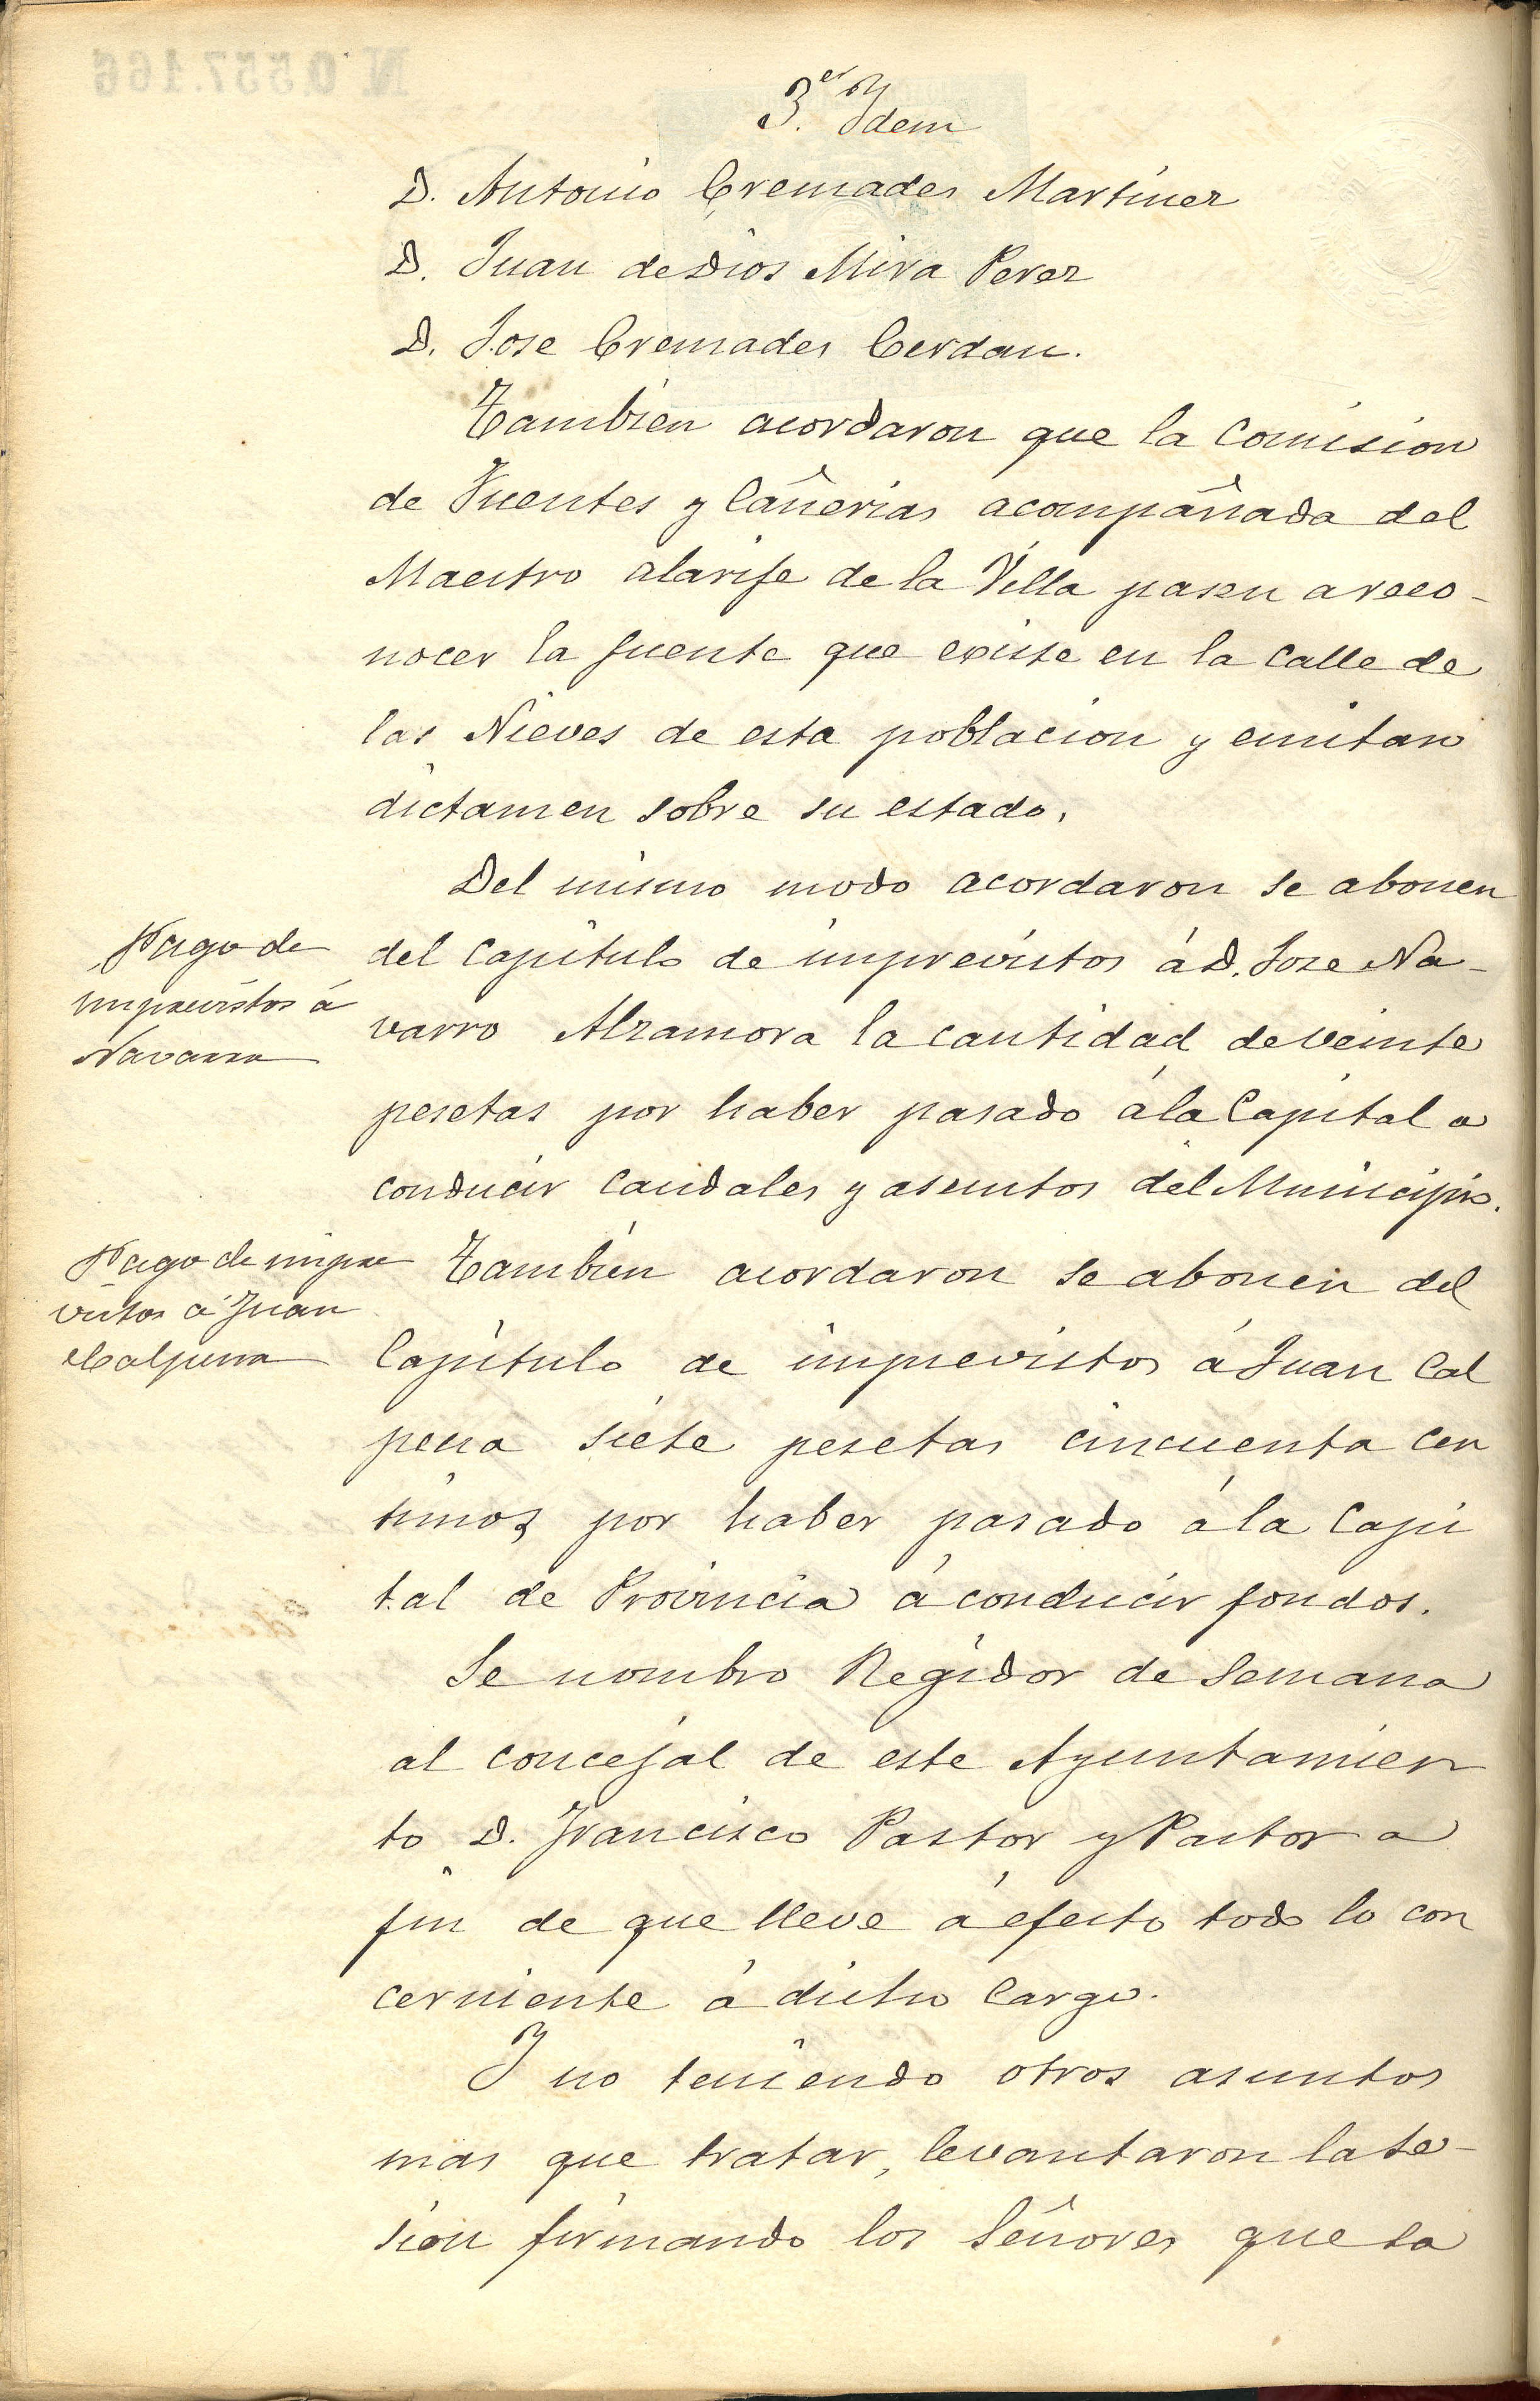 3.er Idem
D. Antonio Cremades Martinez
D. Juan de Dios Mira Perez
D. Jose Cremades Cerdan.
Tambien acordaron que la Comision
de Fuentes y Cañerias acompañada del
Maestro alarife de la Villa pasen a reco-
nocer la fuente que existe en la Calle de
las Nieves de esta poblacion y emitan
dictamen sobre su estado.
Del mismo modo acordaron se abonen
Pago de
imprevistos á
Navarro
del Capitulo de imprevistos á D. Jose Na-
varro Alzamora la cantidad de veinte
pesetas por haber pasado á la Capital a
conducir Caudales y asuntos del Municipio.
Pago de impre
vistos á Juan
Calpena
Tambien acordaron se abonen del
Capitulo de imprevistos á Juan Cal
pena siete pesetas cincuenta cen
timos por haber pasado á la Capi
tal de Provincia á conducir fondos.
Se nombro Regidor de Semana
al concejal de este Ayuntamien
to D. Francisco Pastor y Pastor a
fin de que lleve á efecto todo lo con
cerniente á dicho Cargo.
Y no teniendo otros asuntos
mas que tratar, levantaron la se-
sion firmando los Señores que sa
Nº 0.557.166